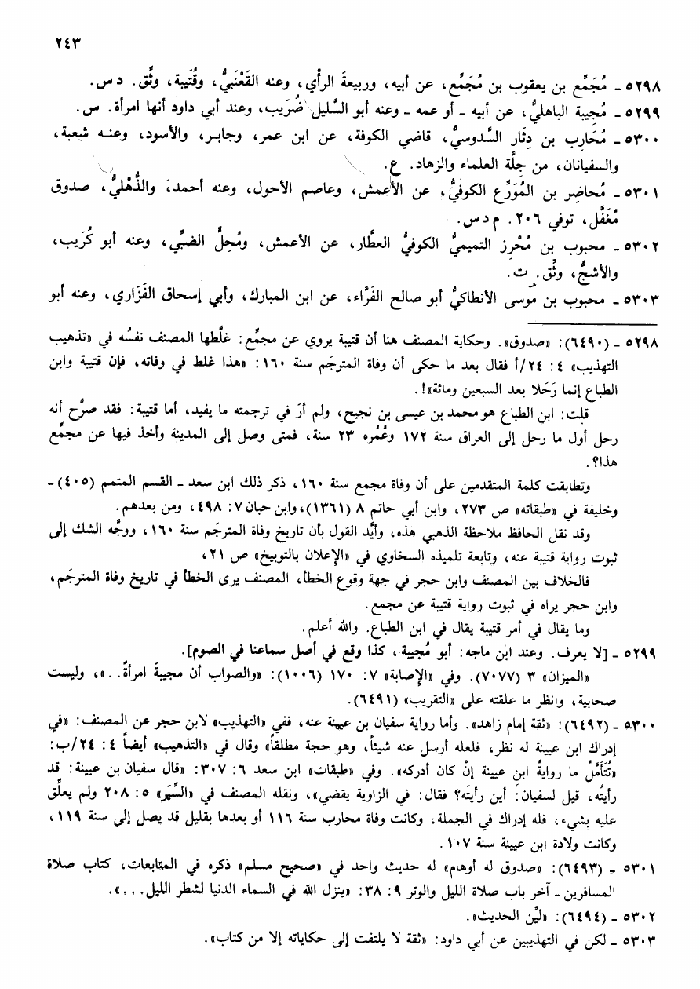 ٢٤٣
٥٢٩٨ - مُجَمِّع بن يعقوب بن مُجَمِّع، عن أبيه، وربيعةَ الرأي، وعنه القَعْنَبيُّ، وقُتَيبة، وثِّق. د س.
٥٢٩٩ - مُجِيبة الباهليُّ، عن أبيه - أو عمه - وعنه أبو السَّليل ضُرَيب، وعند أبي داود أنها امرأة. س.
٥٣٠٠ - مُحَارِب بن دِثَار السَّدوسيُّ، قاضي الكوفة، عن ابن عمر، وجابر، والأسود، وعنه شعبة،
والسفيانان، من جِلَّة العلماء والزهاد. ع.
٥٣٠١ - مُحاضِر بن المُوَرِّع الكوفيُّ، عن الأعمش، وعاصم الأحول، وعنه أحمدُ، والذُّهْليُّ، صدوق
مُغَفَّل، توفي ٢٠٦. م د س.
٥٣٠٢ - محبوب بن مُحْرِز التميميُّ الكوفيُّ العطَّار، عن الأعمش، ومُحِلٍّ الضبِّي، وعنه أبو كُرَيب،
والأشجُّ، وثِّق. ت.
٥٣٠٣ - محبوب بن مُوسى الأنطاكيُّ أبو صالح الفَرَّاء، عن ابن المبارك، وأبي إسحاق الفَزَاري، وعنه أبو
٥٢٩٨ - (٦٤٩٠): «صدوق». وحكاية المصنف هنا أن قتيبة يروي عن مجمِّع: غلَّطها المصنف نفسُه في «تذهيب
التهذيب» ٤: ٢٤/أ فقال بعد ما حكى أن وفاة المترجَم سنة ١٦٠: «هذا غلط في وفاته، فإن قتيبة وابن
الطباع إنما رَحَلا بعد السبعين ومائة»!.
قلت: ابن الطباع هو محمد بن عيسى بن نجيح، ولم أرَ في ترجمته ما يفيد، أما قتيبة: فقد صرَّح أنه
رحل أول ما رحل إلى العراق سنة ١٧٢ وعُمُره ٢٣ سنة، فمتى وصل إلى المدينة وأخذ فيها عن مجمِّع
هذا؟.
وتطابقت كلمة المتقدمين على أن وفاة مجمع سنة ١٦٠، ذكر ذلك ابن سعد - القسم المتمم (٤٠٥) -
وخليفة في «طبقاته» ص ٢٧٣، وابن أبي حاتم ٨ (١٣٦١)، وابن حبان ٧: ٤٩٨، ومن بعدهم.
وقد نقل الحافظ ملاحظة الذهبي هذه، وأيَّد القول بأن تاريخ وفاة المترجَم سنة ١٦٠، ووجَّه الشك إلى
ثبوت رواية قتيبة عنه، وتابعة تلميذه السخاوي في «الإعلان بالتوبيخ» ص ٢١،
فالخلاف بين المصنف وابن حجر في جهة وقوع الخطأ، المصنف يرى الخطأ في تاريخ وفاة المترجَم،
وابن حجر يراه في ثبوت رواية قتيبة عن مجمع.
وما يقال في أمر قتيبة يقال في ابن الطباع. والله أعلم.
٥٢٩٩ - [لا يعرف. وعند ابن ماجه: أبو مُجيبة، كذا وقع في أصل سماعنا في الصوم].
«الميزان» ٣ (٧٠٧٧). وفي «الإصابة» ٧: ١٧٠ (١٠٠٦): «والصواب أن مجيبةَ امرأةٌ..»، وليست
صحابية، وانظر ما علقته على «التقريب» (٦٤٩١).
٥٣٠٠ - (٦٤٩٢): «ثقة إمام زاهد». وأما رواية سفيان بن عيينة عنه، ففي «التهذيب» لابن حجر عن المصنف: «في
إدراك ابن عيينة له نظر، فلعله أرسل عنه شيئاً، وهو حجة مطلقاً» وقال في «التذهيب» أيضاً ٤: ٢٤/ب:
«تُتَأمَّلُ ما روايةُ ابن عيينة إنْ كان أدركه». وفي «طبقات» ابن سعد ٦: ٣٠٧: «قال سفيان بن عيينة: قد
رأيتُه، قيل لسفيان: أين رأيتَه؟ فقال: في الزاوية يقضي»، ونقله المصنف في «السِّيَر» ٥: ٢٠٨ ولم يعلِّق
عليه بشيء، فله إدراك في الجملة، وكانت وفاة محارب سنة ١١٦ أو بعدها بقليل قد يصل إلى سنة ١١٩،
وكانت ولادة ابن عيينة سنة ١٠٧.
٥٣٠١ - (٦٤٩٣): «صدوق له أوهام» له حديث واحد في «صحيح مسلم» ذكره في المتابعات، كتاب صلاة
المسافرين - آخر باب صلاة الليل والوتر ٩: ٣٨: «ينزل الله في السماء الدنيا لشطر الليل...».
٥٣٠٢ - (٦٤٩٤): «ليِّن الحديث».
٥٣٠٣ - لكن في التهذيبين عن أبي داود: «ثقة لا يلتفت إلى حكاياته إلا من كتاب».